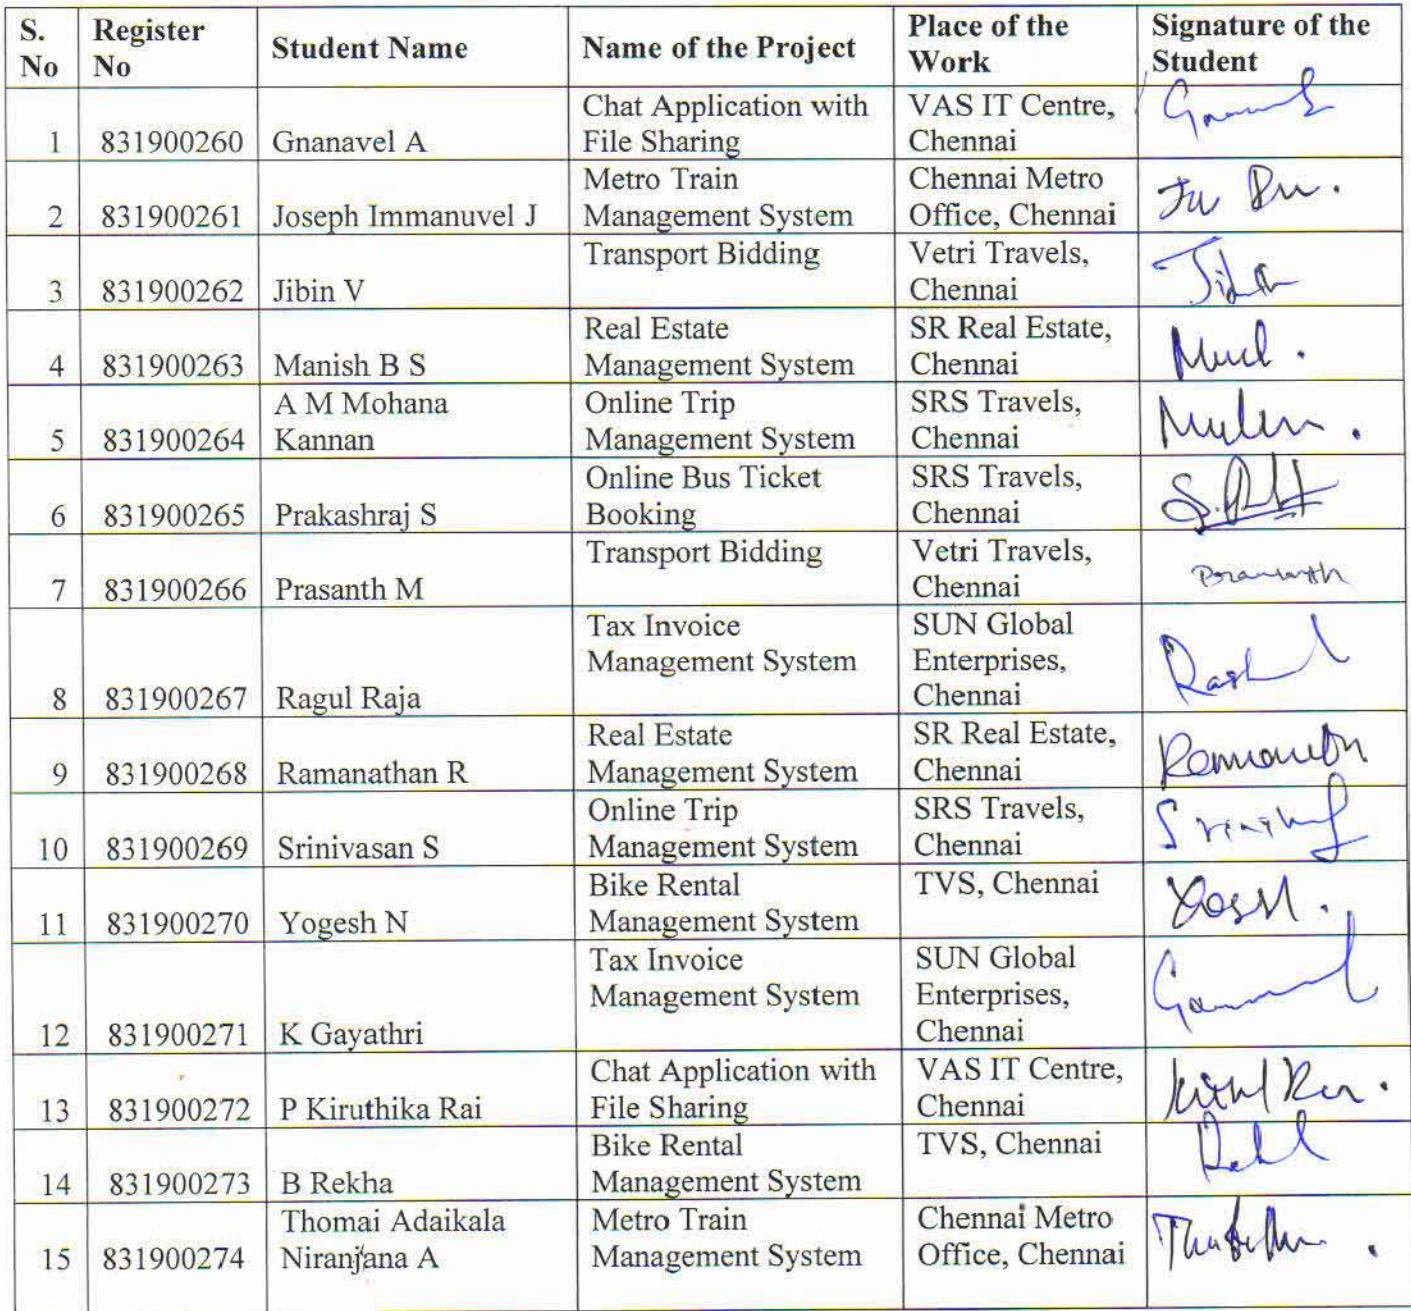 S. No Register No Student Name Name of the Project Place of the Work Signature of the Student
1 831900260 Gnanavel A Chat Application with File Sharing VAS IT Centre, Chennai
2 831900261 Joseph Immanuvel J Metro Train Management System Chennai Metro Office, Chennai
3 831900262 Jibin V Transport Bidding Vetri Travels, Chennai
4 831900263 Manish B S Real Estate Management System SR Real Estate, Chennai
5 831900264 A M Mohana Kannan Online Trip Management System SRS Travels, Chennai
6 831900265 Prakashraj S Online Bus Ticket Booking SRS Travels, Chennai
7 831900266 Prasanth M Transport Bidding Vetri Travels, Chennai
8 831900267 Ragul Raja Tax Invoice Management System SUN Global Enterprises, Chennai
9 831900268 Ramanathan R Real Estate Management System SR Real Estate, Chennai
10 831900269 Srinivasan S Online Trip Management System SRS Travels, Chennai
11 831900270 Yogesh N Bike Rental Management System TVS, Chennai
12 831900271 K Gayathri Tax Invoice Management System SUN Global Enterprises, Chennai
13 831900272 P Kiruthika Rai Chat Application with File Sharing VAS IT Centre, Chennai
14 831900273 B Rekha Bike Rental Management System TVS, Chennai
15 831900274 Thomai Adaikala Niranjana A Metro Train Management System Chennai Metro Office, Chennai